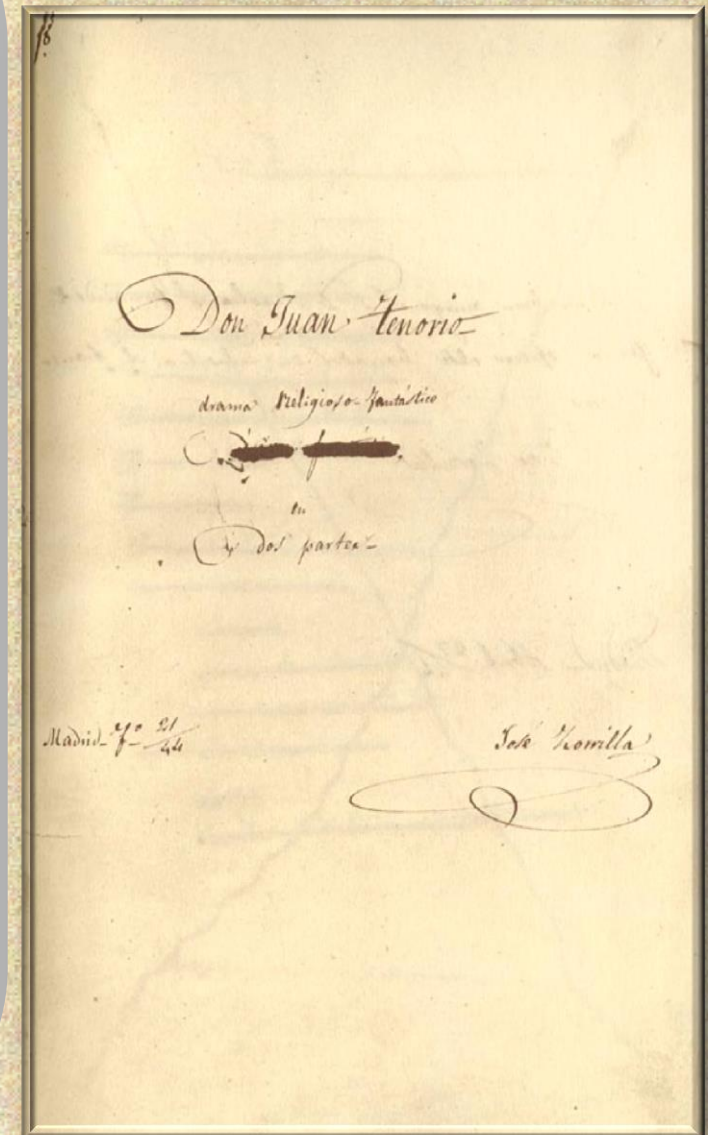 Don Juan Tenorio
drama Religioso-fantástico
en
dos partes
Madrid Fo 21/44
José Zorrilla